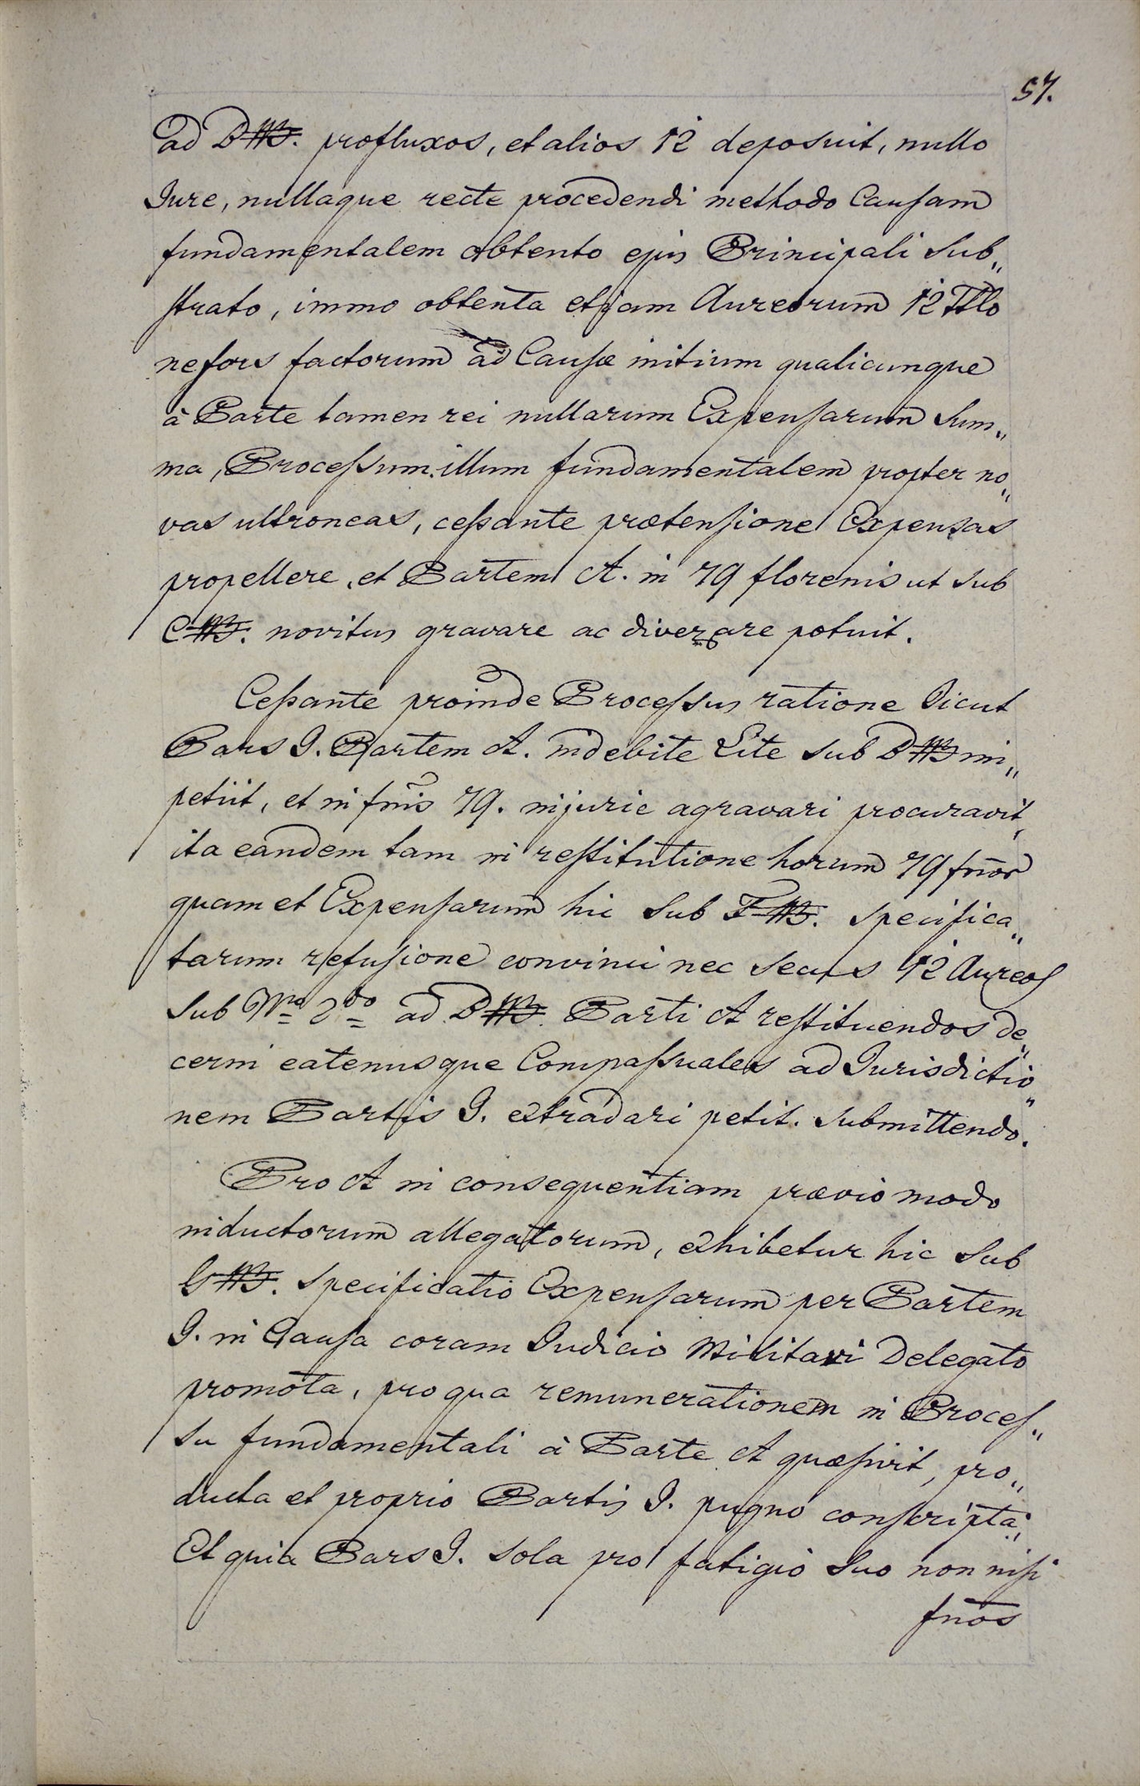 57.
ad D profluxos, et alios 12 deposuit, nullo
Jure, nullaque recte procedendi methodo Causam
fundamentalem obtento ejus Principali Sub„
strato, immo obtenta etjam Aureorum 12
factorum ad Causæ initium qualicunque
à Parte tamen rei nullarum Expensarum Sum„
ma, Processum illum fundamentalem propter no„
vas ultroneas, cessante prætensione Expensas
propellere, et Partem A. in 79 florenis ut sub
C novitus gravare ac potuit.
Cessante proinde Processus ratione Sicut
Pars I. Partem A. indebite Lite sub D im„
petiit, et in fnis 79. injurie agravari procuravit„
ita eandem tam in restitutione horum 79 fnor
quam et Expensarum hic sub F. Specifica„
tarum refusione convinci nec secus 12 Aureos
sub Nro 2do ad D Parti A restituendos de„
cerni eatenusque Compassuales ad Jurisdictio„
nem Partis I. extradari petit. Submittendo.
Pro A in consequentiam prævio modo
inductorum allegatorum, exhibetur hic sub
G Specificatio Expensarum per Partem
I. in Causa coram Judicio Militari Delegato
promota, pro qua remunerationem in Proces„
su fundamentali à Parte A quæsivit, pro„
ducta et proprio Partis I. pugno conscripta„
Et quia Pars I. sola pro fatigio suo non nisi
fnos